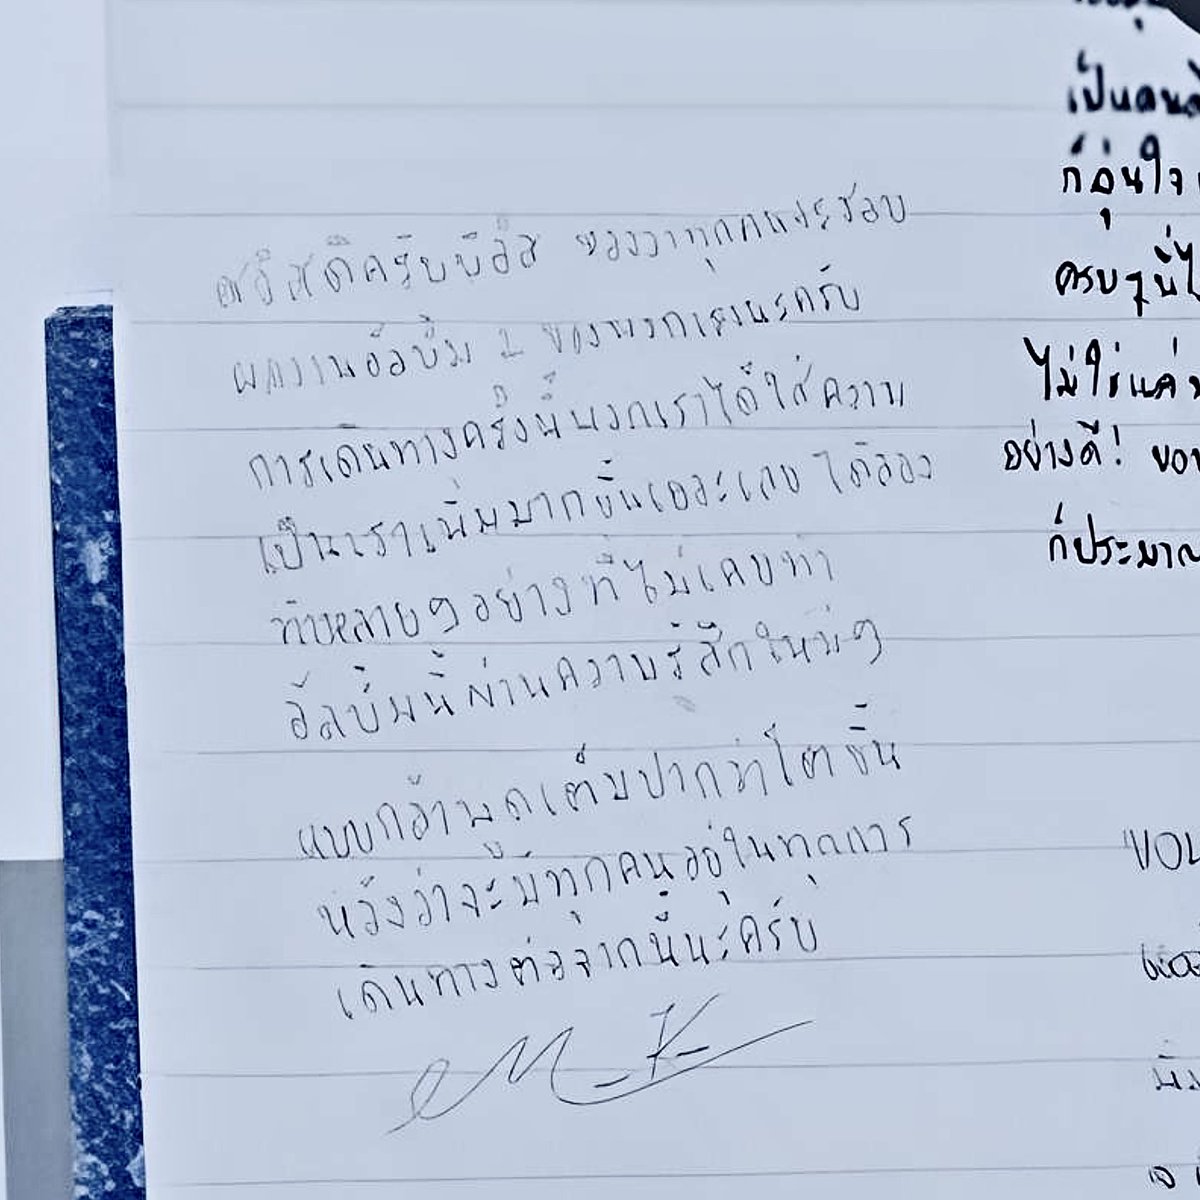 สวัสดีครับบีอัส หวังว่าทุกคนจะชอบ
ผลงานอัลบั้ม 2 ของพวกเรานะครับ
การเดินทางครั้งนี้พวกเราได้ใส่ความ
เป็นเราเพิ่มมากขึ้นเยอะเลย ได้ลอง
ทำหลายๆอย่างที่ไม่เคยทำ
อัลบั้มนี้ผ่านความรู้สึกใหม่ๆ
แบบกล้าพูดเต็มปากว่าโตขึ้น
หวังว่าจะมีทุกคนอยู่ในทุกการ
เดินทางต่อจากนี้นะครับ
เป็นคน
ก็อุ่นใจ
ครบๆนี่ไ
ไม่ใช่แค่
อย่างดี! ขอบ
ก็ประมาณ